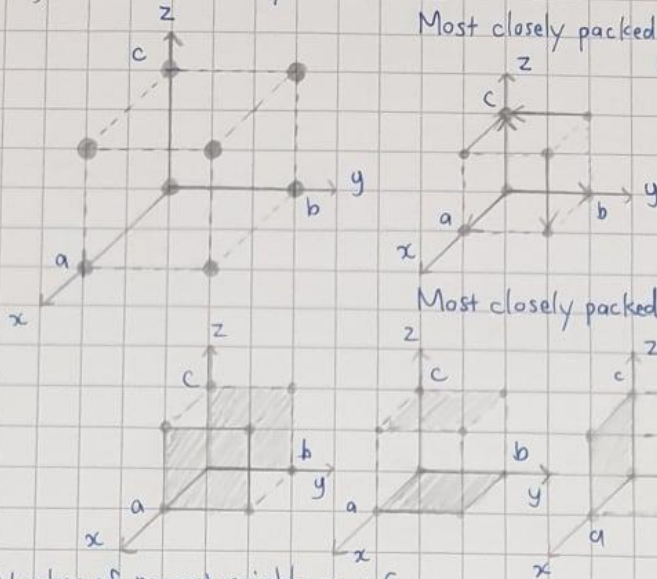 z
c
y
b
a
x
Most closely packed
z
c
y
b
a
x
Most closely packed
z
c
b
y
a
x
z
c
b
y
a
x
z
c
a
x